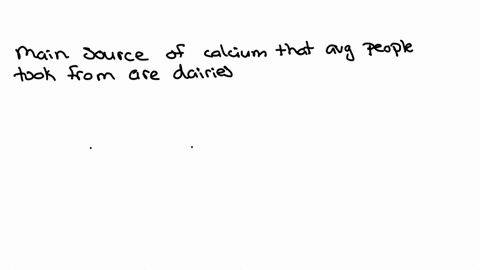 Main source of calcium that avg people
took from are dairies